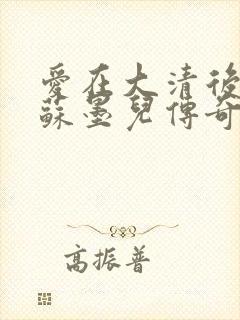 愛在大清後
蘇墨兒傳奇
高振普